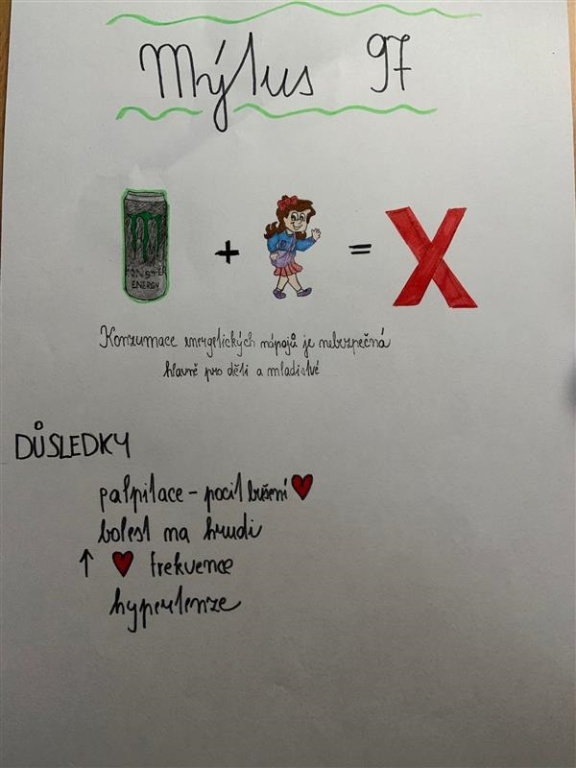 Mýtus 97
MONSTER
ENERGY
+ = X
Konzumace energetických nápojů je nebezpečná
hlavně pro děti a mladistvé
DŮSLEDKY
palpitace - pocit bušení ♥
bolest na hrudi
↑ ♥ frekvence
hypertenze